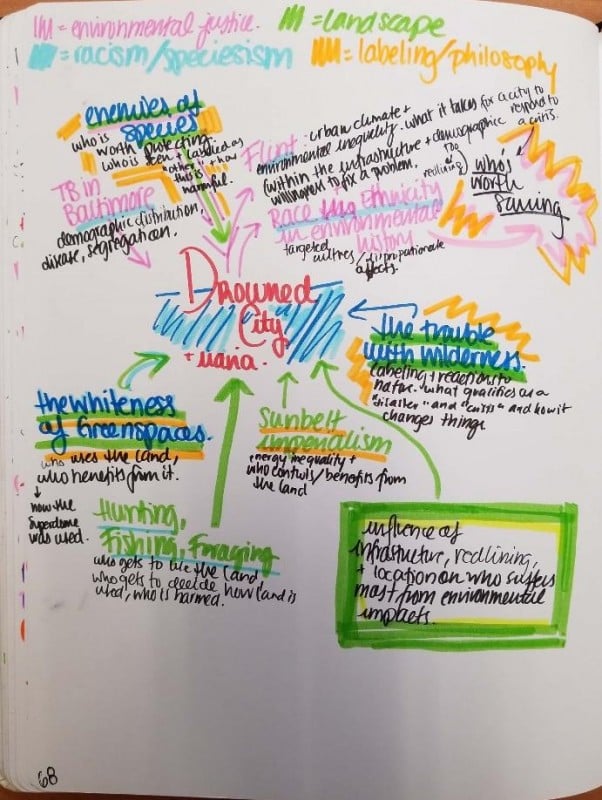 = environmental justice.
= landscape
= racism/speciesism
= labeling/philosophy
enemies of
species
who is
worth protecting,
who is seen + labeled as
"other" + how
this is
harmful.
TB in
Baltimore
demographic distribution,
disease, segregation.
Flint: urban climate +
environmental inequality - what it takes fix a city to
(within the infrastructure + demographic respond to
willingness to fix a problem. a crisis.
Race + Ethnicity
in environmental
history
targeted
cultures / disproportionate
affects.
redlining)
who's
worth
saving
Drowned
City
+ maria.
the trouble
with wilderness.
labeling + reactions to
nature. what qualifies as a
"disaster" and "crisis" and how it
changes things
the whiteness
of Greenspaces.
who uses the land,
who benefits from it.
how the
superdome
was used.
Sunbelt
imperialism
energy inequality +
who controls/benefits from
the land
Hunting,
Fishing, Foraging
who gets to use the land,
who gets to decide how land is
used, who is harmed.
influence of
infrastucture, redlining,
+ location on who suffers
most from environmental
impacts.
68